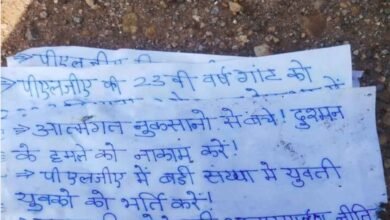 पीएलजीए की
→ पीएलजीए की 23 वी वर्ष गांठ को
→ आत्मगत नुकसानो से बचे! दुश्मन
के हमले को नाकाम करें!
→ पी एलजीए में बडी संख्या मे युवती
युवको को भर्ति करें!